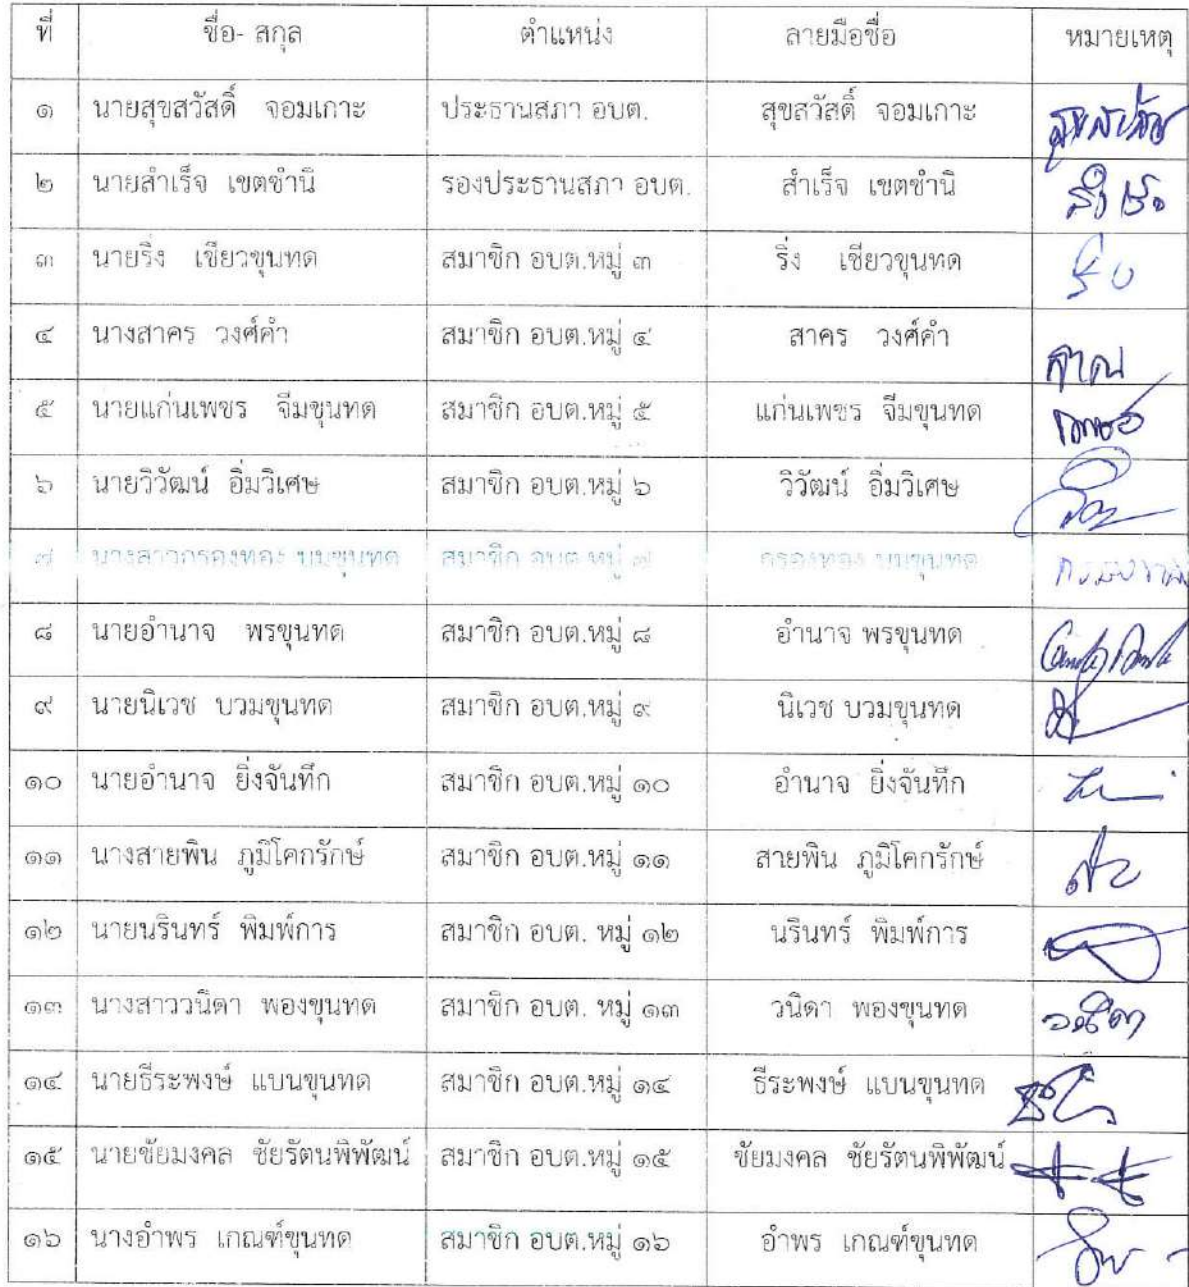 ที่ ชื่อ- สกุล ตำแหน่ง ลายมือชื่อ หมายเหตุ
๑ นายสุขสวัสดิ์ จอมเกาะ ประธานสภา อบต. สุขสวัสดิ์ จอมเกาะ
๒ นายสำเร็จ เขตชำนิ รองประธานสภา อบต. สำเร็จ เขตชำนิ
๓ นายริ่ง เชียวขุนทด สมาชิก อบต.หมู่ ๓ ริ่ง เชียวขุนทด
๔ นางสาคร วงศ์คำ สมาชิก อบต.หมู่ ๔ สาคร วงศ์คำ
๕ นายแก่นเพชร จีมขุนทด สมาชิก อบต.หมู่ ๕ แก่นเพชร จีมขุนทด
๖ นายวิวัฒน์ อิ่มวิเศษ สมาชิก อบต.หมู่ ๖ วิวัฒน์ อิ่มวิเศษ
๗ นางสาวกรองทอง สมาชิก อบต.หมู่ ๗ กรองทอง
๘ นายอำนาจ พรขุนทด สมาชิก อบต.หมู่ ๘ อำนาจ พรขุนทด
๙ นายนิเวช บวมขุนทด สมาชิก อบต.หมู่ ๙ นิเวช บวมขุนทด
๑๐ นายอำนาจ ยิ่งจันทึก สมาชิก อบต.หมู่ ๑๐ อำนาจ ยิ่งจันทึก
๑๑ นางสายพิน ภูมิโคกรักษ์ สมาชิก อบต.หมู่ ๑๑ สายพิน ภูมิโคกรักษ์
๑๒ นายนรินทร์ พิมพ์การ สมาชิก อบต. หมู่ ๑๒ นรินทร์ พิมพ์การ
๑๓ นางสาววนิดา พองขุนทด สมาชิก อบต. หมู่ ๑๓ วนิดา พองขุนทด วนิดา
๑๔ นายธีระพงษ์ แบนขุนทด สมาชิก อบต.หมู่ ๑๔ ธีระพงษ์ แบนขุนทด
๑๕ นายชัยมงคล ชัยรัตนพิพัฒน์ สมาชิก อบต.หมู่ ๑๕ ชัยมงคล ชัยรัตนพิพัฒน์
๑๖ นางอำพร เกณฑ์ขุนทด สมาชิก อบต.หมู่ ๑๖ อำพร เกณฑ์ขุนทด